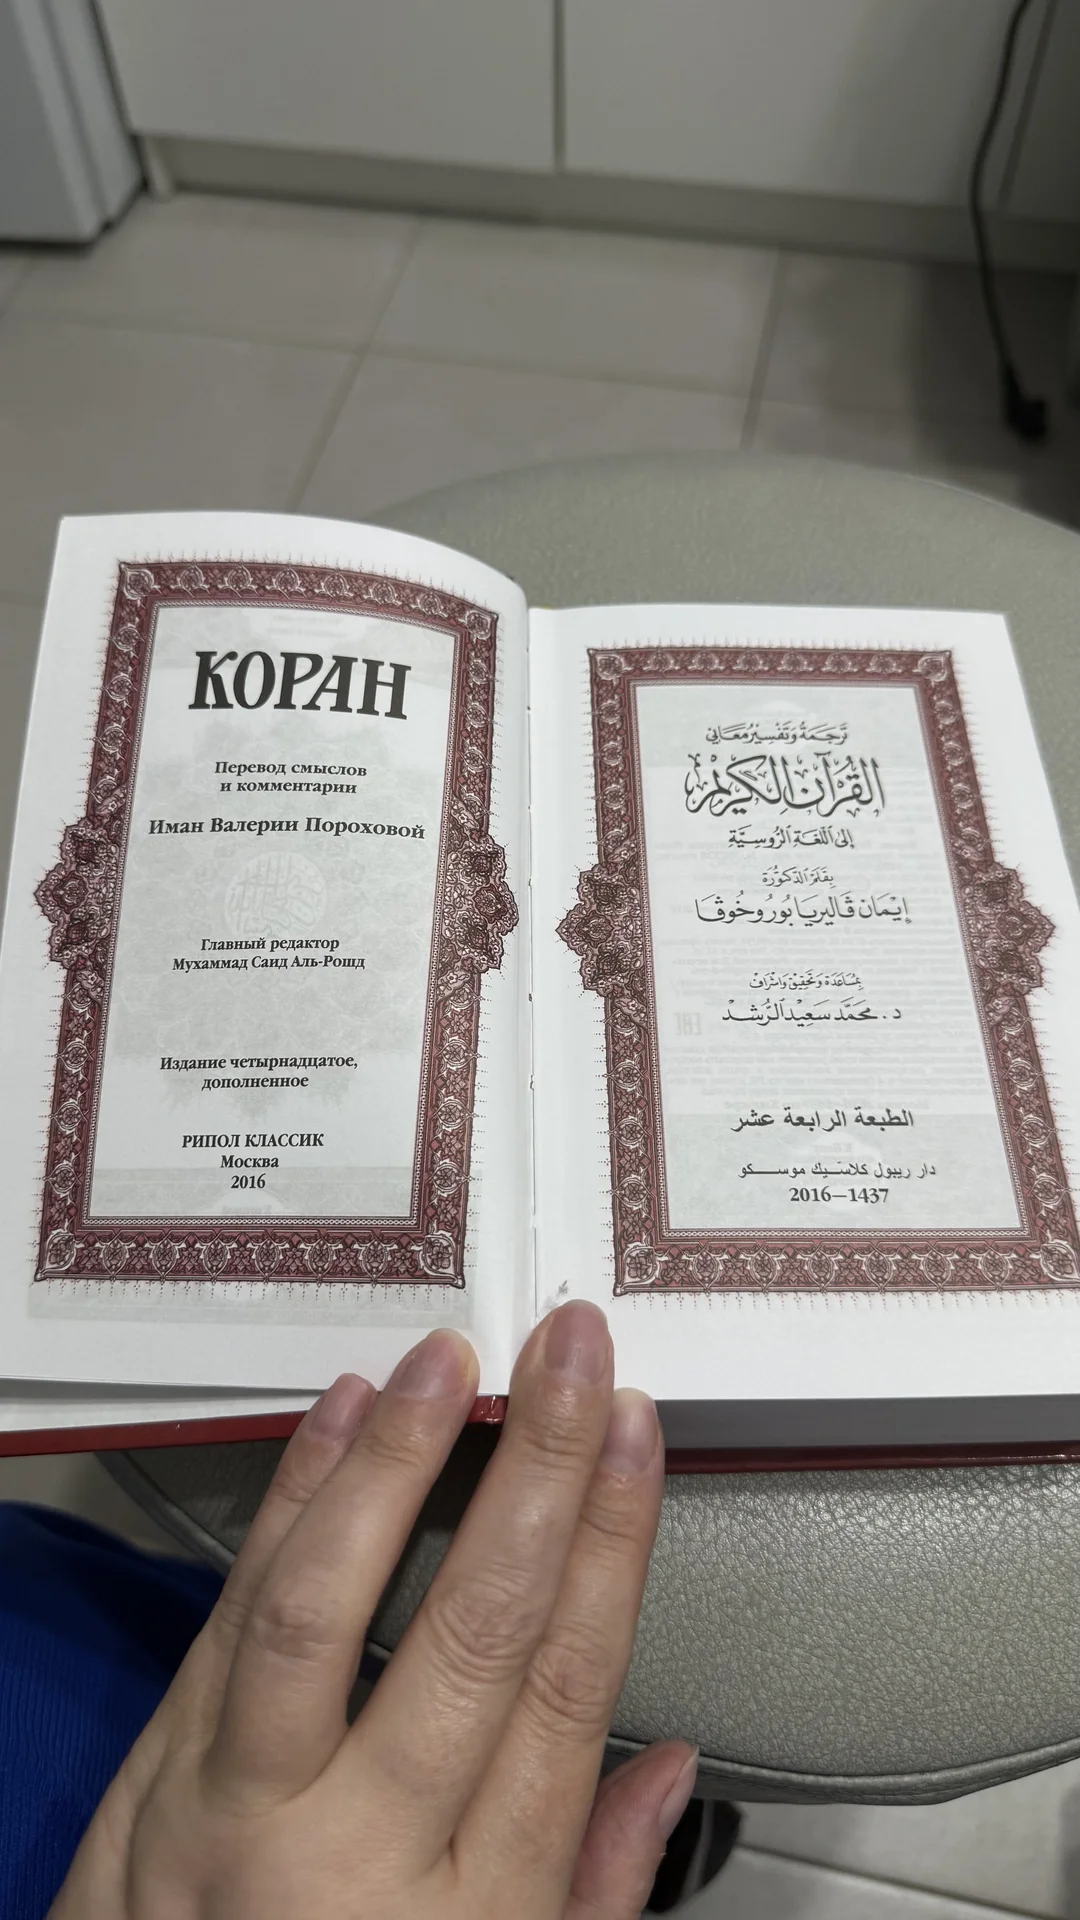 КОРАН
Перевод смыслов
и комментарии
Иман Валерии Пороховой
Главный редактор
Мухаммад Саид Аль-Рошд
Издание четырнадцатое,
дополненное
РИПОЛ КЛАССИК
Москва
2016
تَرجَمَةُ وَتَفْسِيْرُ مَعَانِي
القُرآنِ الكَرِيْم
إلى اللّغَةِ الرُّوسِيَّة
بِقَلَمِ الدّكتُورَة
إيْمَان ڤَاليريَا بُورُوخُوڤَا
بِمُسَاعَدَة وَتَحقِيْق وَاشْرَاف
د. مُحَمَّد سَعِيْد الرُّشد
الطبعة الرابعة عشر
دار ريبول كلاسّيك موسكو
2016—1437